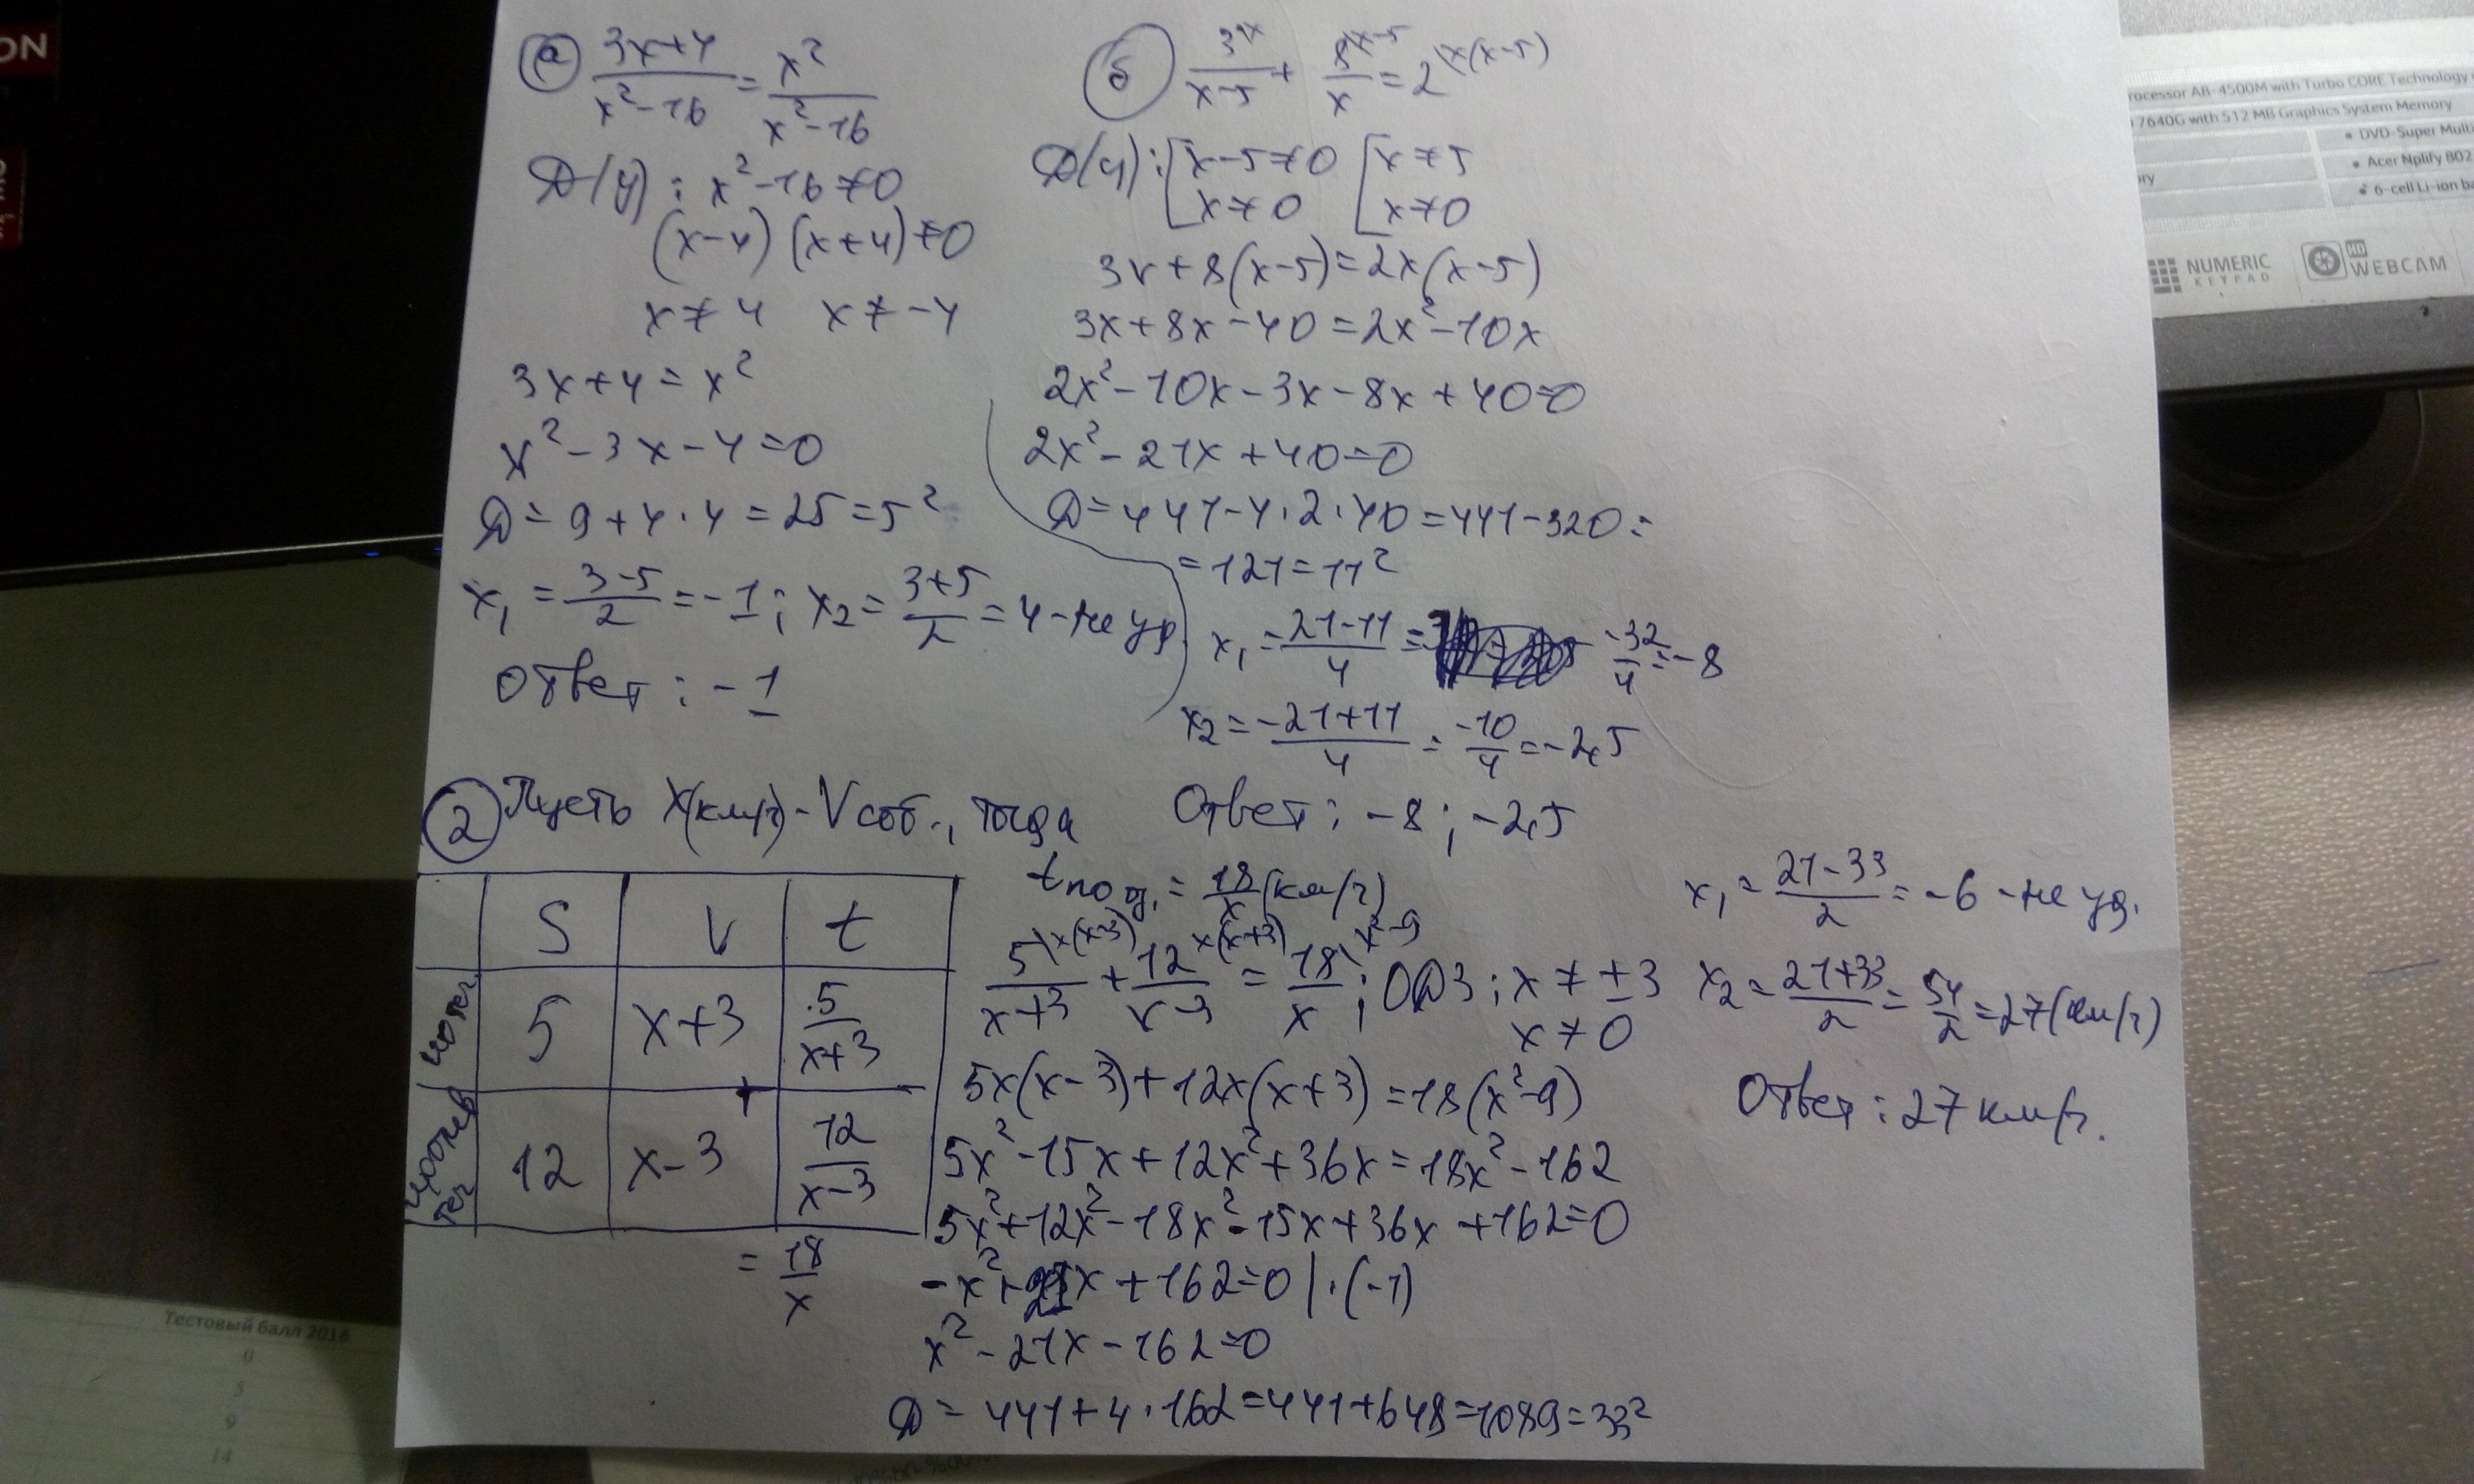 а) (3x+4)/(x²-16) = x²/(x²-16)
D(y): x²-16≠0
(x-4)(x+4)≠0
x≠4 x≠-4
3x+4=x²
x²-3x-4=0
D=9+4·4=25=5²
x₁=(3-5)/2=-1; x₂=(3+5)/2=4-не уд.
Ответ: -1
б) 3\x/(x-5) + 8\x-5/x = 2\x(x-5)
D(y): [x-5≠0 [x≠5
x≠0 x≠0
3x+8(x-5)=2x(x-5)
3x+8x-40=2x²-10x
2x²-10x-3x-8x+40=0
2x²-21x+40=0
D=441-4·2·40=441-320=
=121=11²
x₁=(21-11)/4= -32/4=-8
x₂=(-21+11)/4=-10/4=-2,5
Ответ: -8; -2,5
2) Пусть x(км/ч)-Vсоб., тогда
S V t
по теч. 5 x+3 5/(x+3)
12 x-3 12/(x-3)
=18/x
t по оз.=18/x(км/ч)
5\x(x-3)/(x+3) + 12\x(x+3)/(x-3) = 18\x²-9/x; ОДЗ: x≠±3
x≠0
5x(x-3)+12x(x+3)=18(x²-9)
5x²-15x+12x²+36x=18x²-162
5x²+12x²-18x²-15x+36x+162=0
-x²+21x+162=0|·(-1)
x²-21x-162=0
D=441+4·162=441+648=1089=33²
x₁=(21-33)/2=-6-не уд.
x₂=(21+33)/2=54/2=27(км/ч)
Ответ: 27 км/ч.
ON
rocessor A8-4500M with Turbo CORE Technology
7640G with 512 MB Graphics System Memory
DVD-Super Multi
Acer Nplify 802
6-cell Li-ion ba
ry
NUMERIC
KEYPAD
HD
WEBCAM
Тестовый балл 2016
0
5
9
14